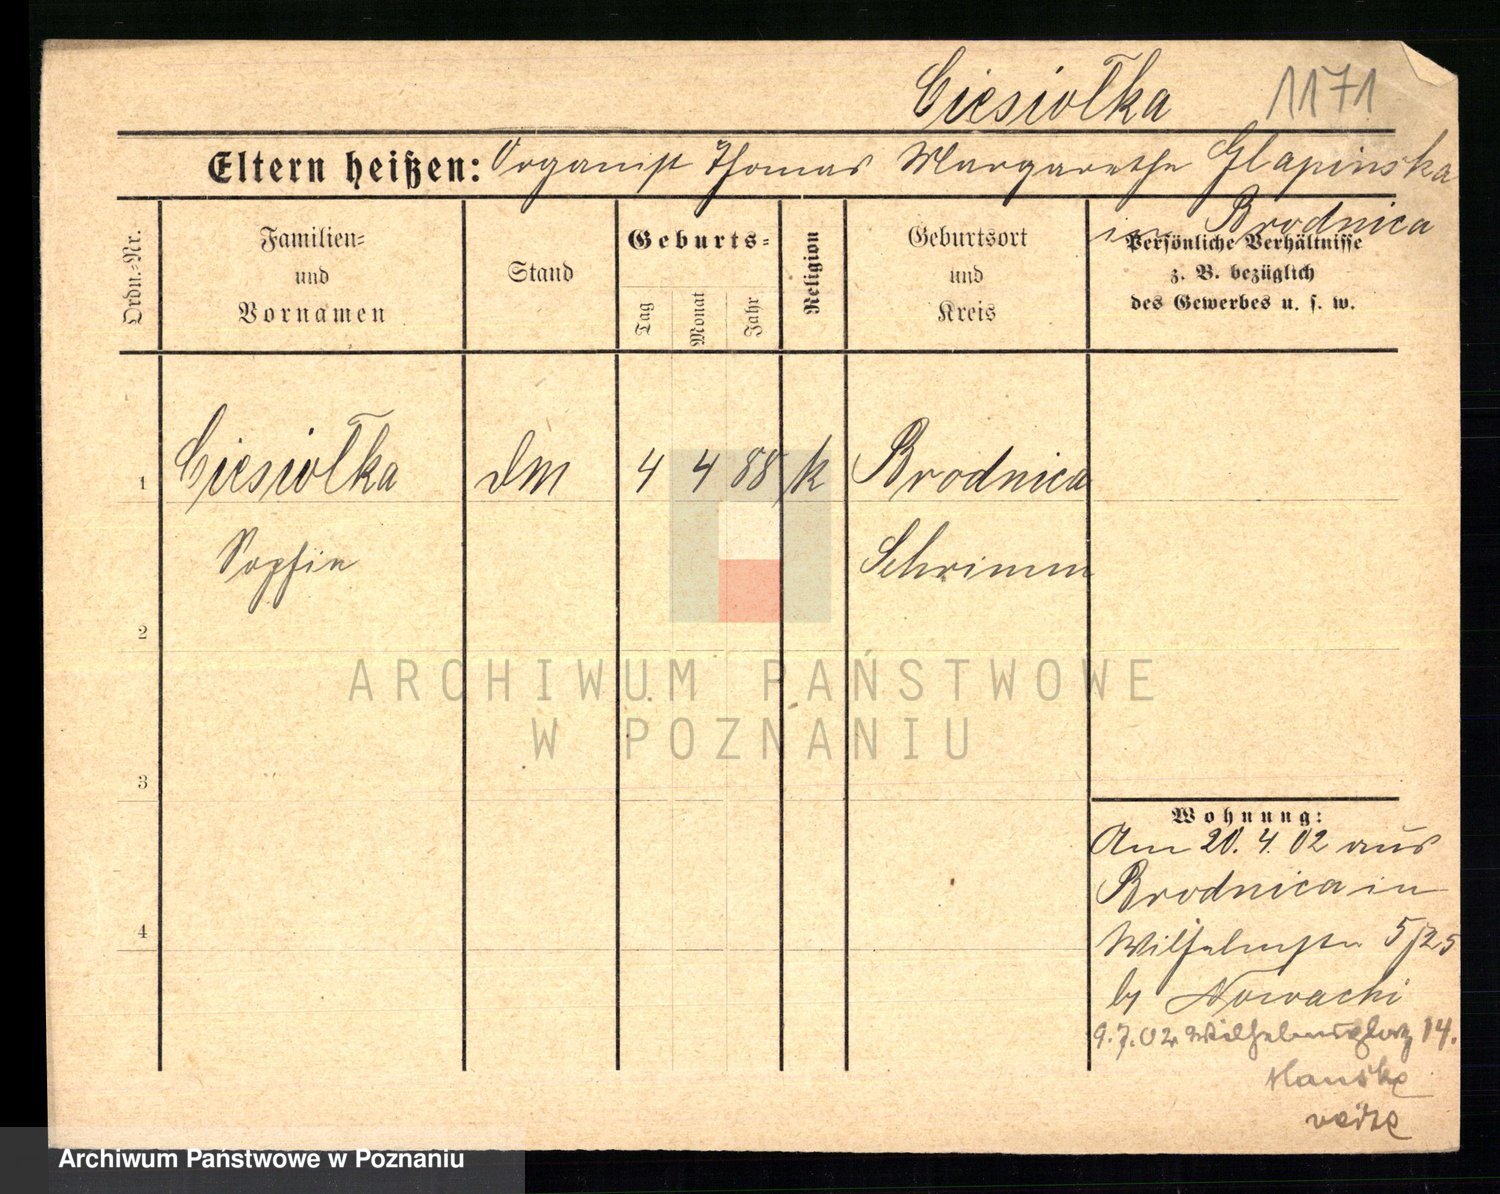 Ciesiołka 1171
Eltern heißen: Organist Thomas Margarethe Glapinska
in Brodnica
Ordn.-Nr.
Familien-
und
Vornamen
Stand
Geburts-
Tag
Monat
Jahr
Religion
Geburtsort
und
Kreis
Persönliche Verhältnisse
z. B. bezüglich
des Gewerbes u. s. w.
1 Ciesiołka Dm 4 4 88 k Brodnica
Sophie Schrimm
2
3
4
Wohnung:
Am 20. 4. 02 aus
Brodnica in
Wilhelmstr 5/25
by Nowacki
9.7.02 Wilhelmsplatz 14.
ARCHIWUM PAŃSTWOWE
W POZNANIU
Archiwum Państwowe w Poznaniu